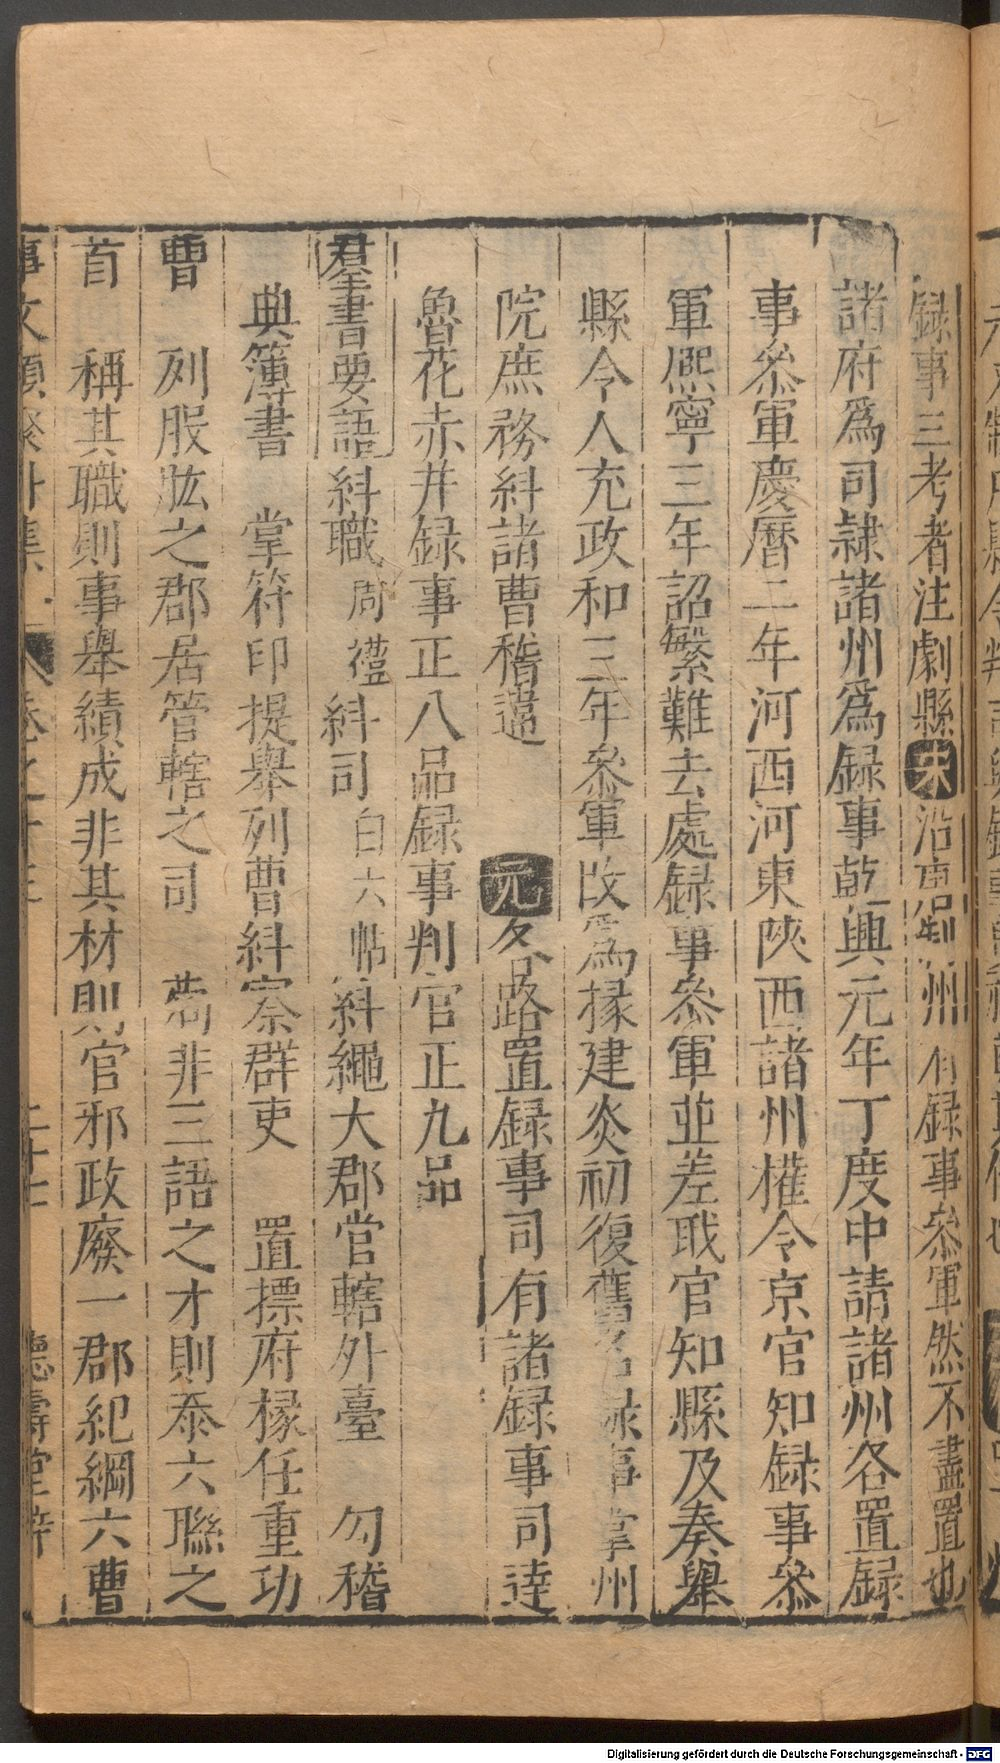 録事三考者注劇縣宋沿唐制州有録事參軍然不盡置也
諸府爲司隸諸州爲録事乾興元年丁度申請諸州各置録
事參軍慶曆二年河西河東陜西諸州權令京官知録事參
軍熈寧三年詔繁難去處録事參軍並差職官知縣及奏舉
縣令人充政和三年參軍改爲掾建炎初復舊名録事掌州
院庶務糾諸曹稽違 元各路置録事司有諸録事司達
魯花赤并録事正八品録事判官正九品
羣書要語糾職周禮糾司白六帖糾繩大郡官轄外臺 勾稽
典簿書 掌符印提舉列曹糾察群吏 置摽府掾任重功
曹 列股肱之郡居管轄之司 苟非三語之才則忝六聯之
首 稱其職則事舉績成非其材則官邪政廢一郡紀綱六曹
事文類聚外集 卷之十三 二十七 德壽堂梓
Digitalisierung gefördert durch die Deutsche Forschungsgemeinschaft - DFG